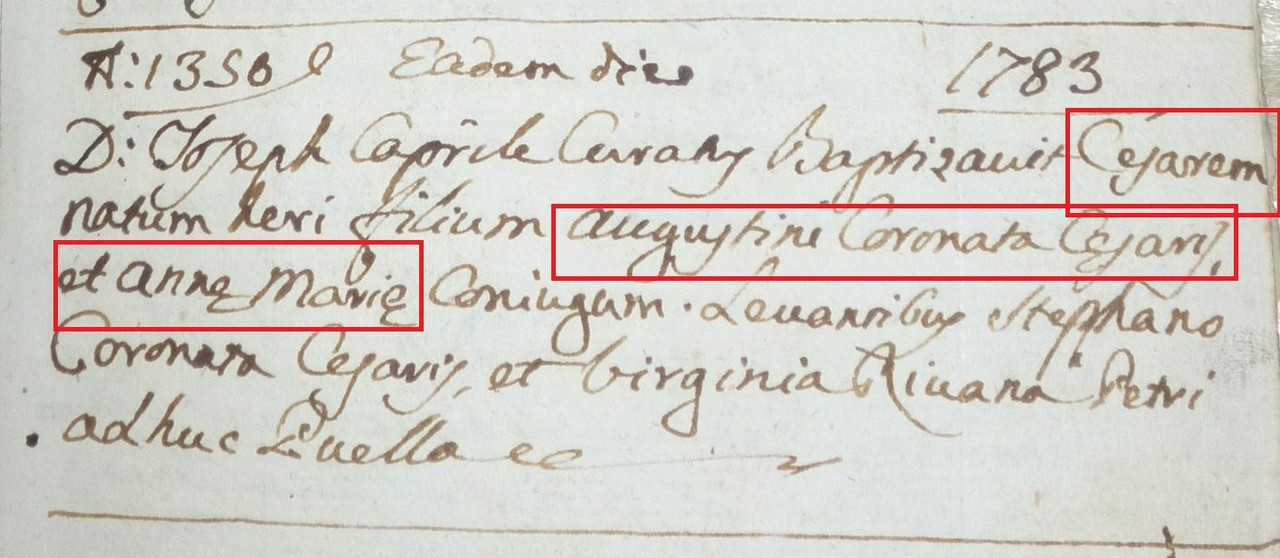 A: 1350 Eadem die 1783
D: Joseph Caprile Curatus Baptizavit Cesarem
natum heri filium Augustini Coronata Cesaris,
et Annę Marię Coniugum. Levantibus Stephano
Coronata Cesaris, et Virginia Rivana Petri
adhuc Puella